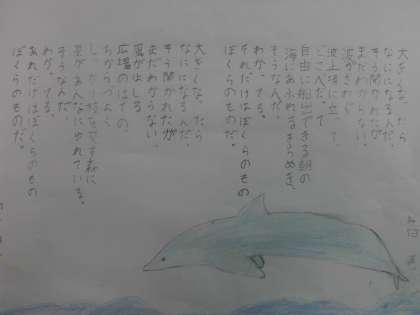 大きくなったら
なにになるんだ、
そう聞かれたが
まだわからない。
波がさわぐ
波止場に立って、
どこへだって
自由に船出できる朝の
海にあふれるきらめき、
そうなんだ、
わかってる。
それだけはぼくらのもの
ぼくらのものだ。
大きくなったら
なにになるんだ、
そう聞かれたが
まだわからない。
風が出しる
広場のはての、
ちからづよく
しっかり
星があんなにゆれている。
そうなんだ
わかってる。
あれだけはぼくらのもの
ぼくらのものだ。